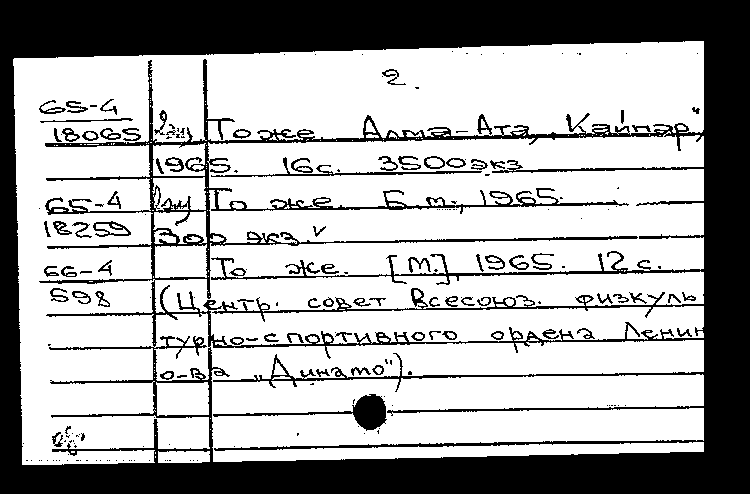 2.
65-4
18065 То же. Алма-Ата, „Кайнар",
1965. 16с. 3500экз
65-4 То же. Б.м., 1965.
18259 300 экз.
66-4 То же. [М.], 1965. 12 с.
598 (Центр. совет Всесоюз. физкуль
турно-спортивного ордена Ленин
о-ва „Динамо").